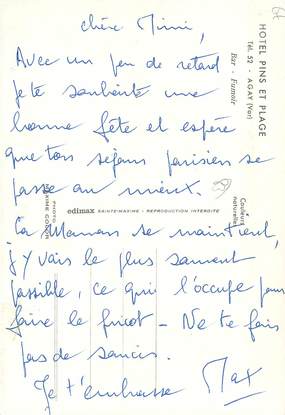 chère Mimi,
Avec un peu de retard
je te souhaite une
bonne fête et espère
que ton séjour parisien se
passe au mieux.
Ta Maman se maintient,
j'y vais le plus souvent
possible, ce qui l'occupe pour
faire le fricot - Ne te fais
pas de soucis.
Je t'embrasse Max
HOTEL PINS ET PLAGE
Tél. 52 - AGAY (Var)
Bar - Fumoir
Couleurs
naturelles
edimax SAINTE-MAXIME - REPRODUCTION INTERDITE
PHOTO